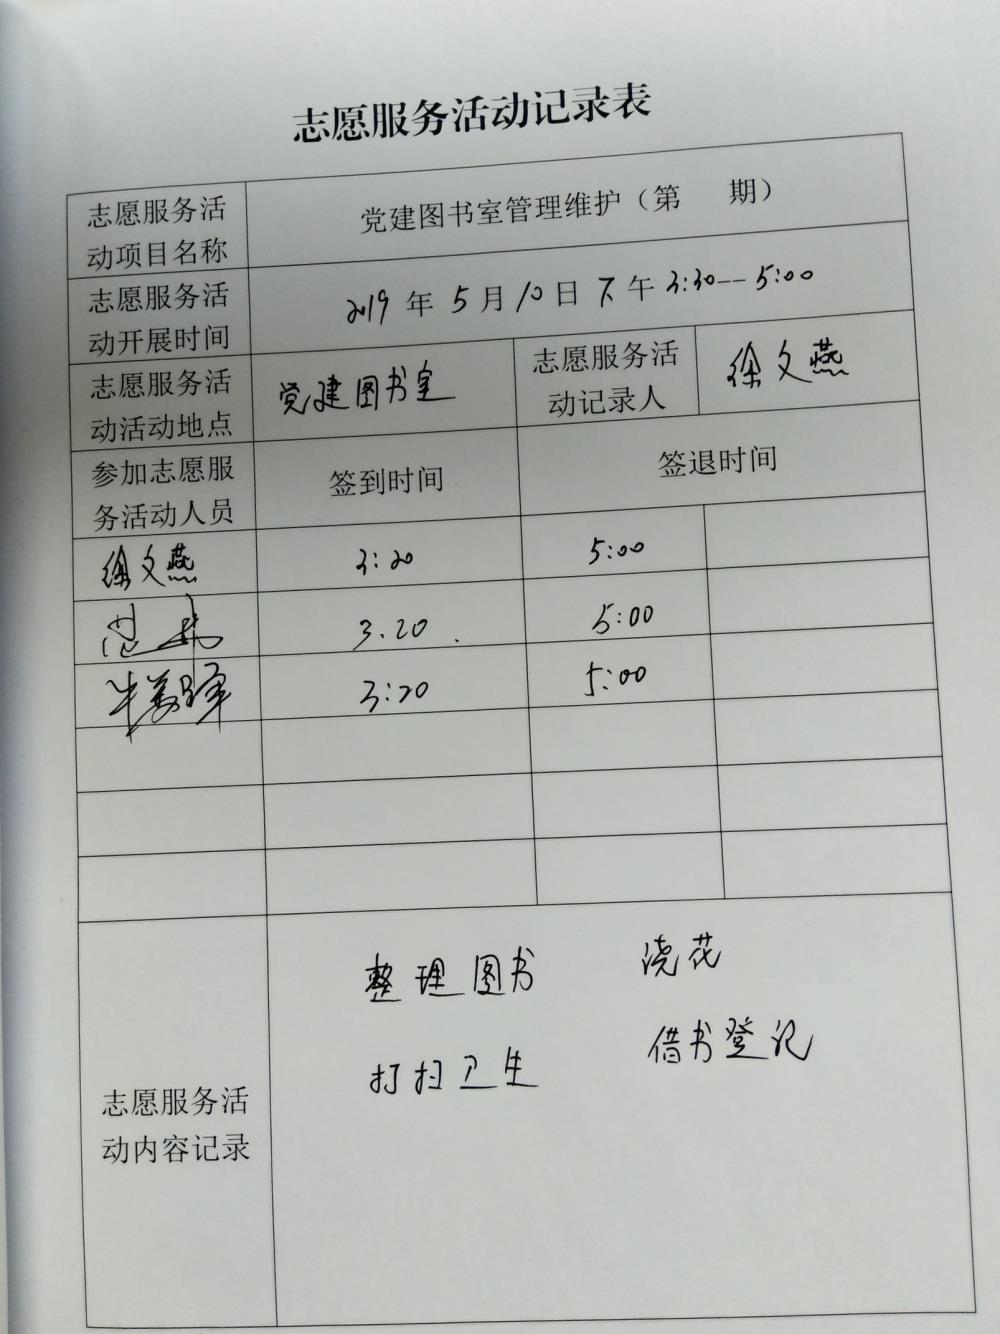 志愿服务活动记录表
志愿服务活
动项目名称
党建图书室管理维护（第 期）
志愿服务活
动开展时间
2019年5月10日下午3:30--5:00
志愿服务活
动活动地点
党建图书室
志愿服务活
动记录人
徐文燕
参加志愿服
务活动人员
签到时间
签退时间
徐文燕 3:20 5:00
3.20. 5:00
3:20 5:00
志愿服务活
动内容记录
整理图书 浇花
打扫卫生 借书登记